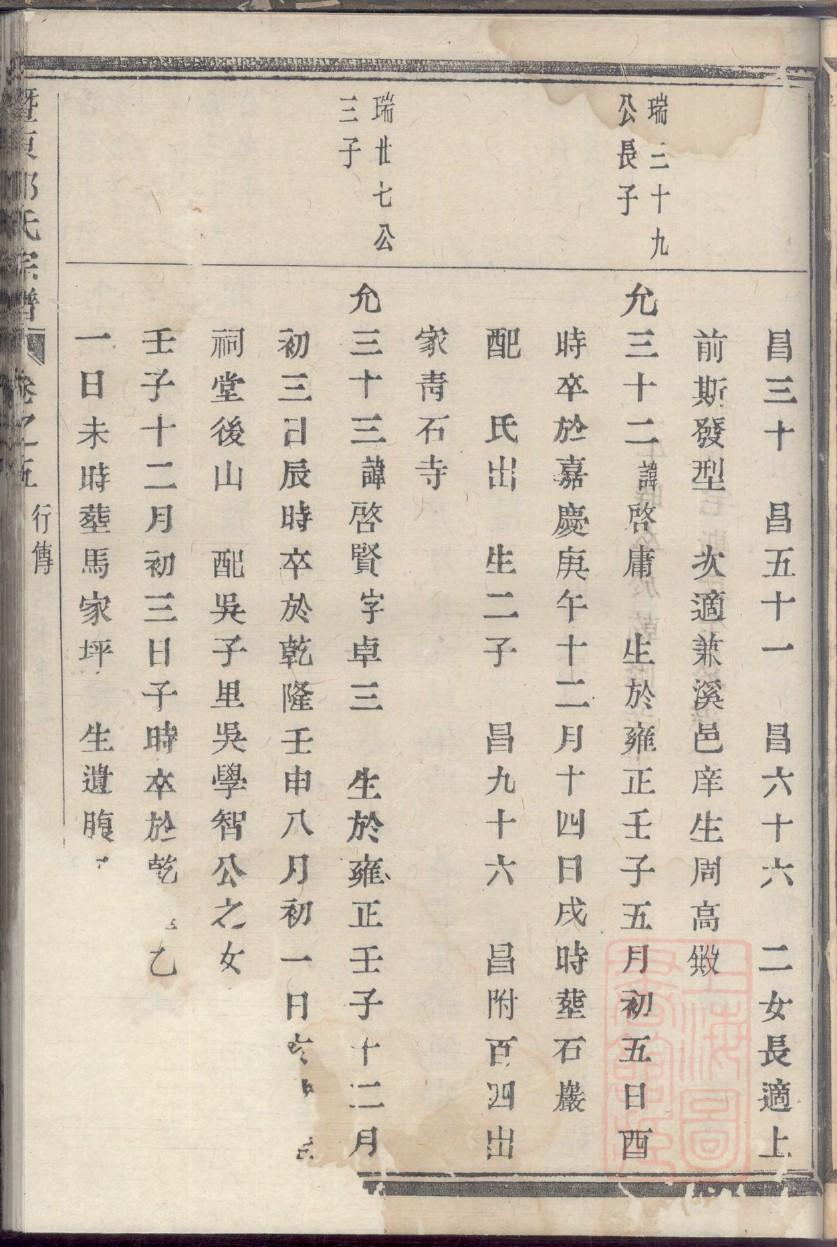 昌三十　昌五十一　昌六十六　二女長適上
前斯發型　次適兼溪邑庠生周高
瑞三十九
公長子
允三十二諱啓庸　生於雍正壬子五月初五日酉
時卒於嘉慶庚午十二月十四日戌時塟石巖
配　氏出　生二子　昌九十六　昌附百四出
家靑石寺
瑞廿七公
三子
允三十三諱啓賢字卓三　生於雍正壬子十二月
初三日辰時卒於乾隆壬申八月初一日
祠堂後山　配吳子里吳學智公之女
壬子十二月初三日子時卒於乾　乙
一日未時塟馬家坪　生遺腹
暨東　氏宗譜　卷之五　行傳
上海圖書館藏